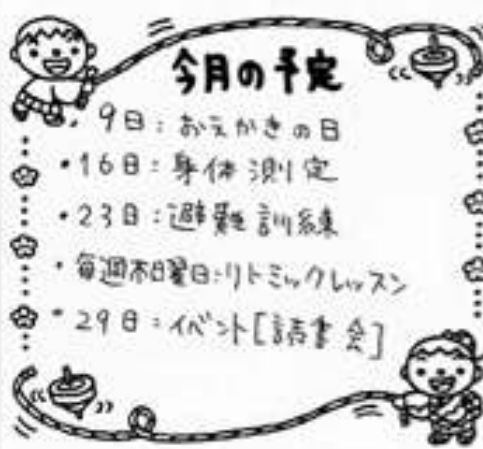 今月の予定
・9日：おえかきの日
・16日：身体測定
・23日：避難訓練
・毎週木曜日：リトミックレッスン
・29日：イベント［読書会］